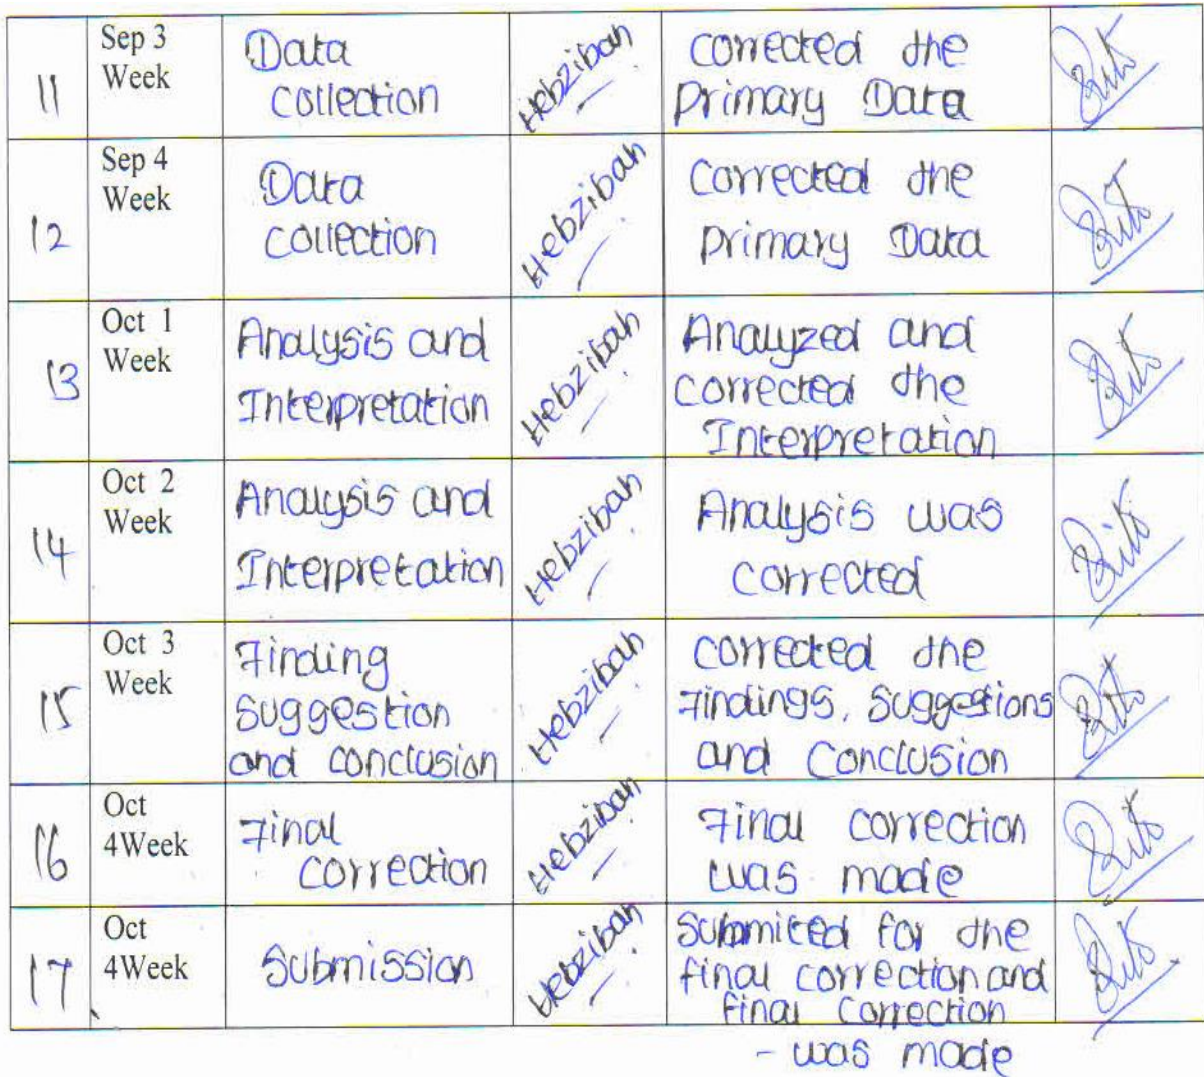 11 Sep 3 Week Data collection Hebzibah corrected the Primary Data
12 Sep 4 Week Data collection Hebzibah Corrected the primary Data
13 Oct 1 Week Analysis and Interpretation Hebzibah Analyzed and corrected the Interpretation
14 Oct 2 Week Analysis and Interpretation Hebzibah Analysis was corrected
15 Oct 3 Week Finding Suggestion and conclusion Hebzibah corrected the Findings, Suggestions and Conclusion
16 Oct 4Week Final correction Hebzibah Final correction was made
17 Oct 4Week Submission Hebzibah Submited for the final correction and final correction - was made